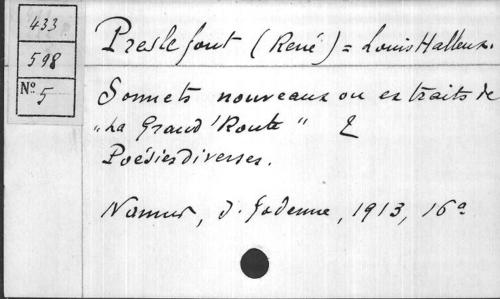 433
598
Nº 5
Preslefont (René) = Louis Halleux.
Sonnets nouveaux ou extraits de
"La Grand'Route" &
Poésies diverses.
Namur, J. Godenne, 1913, 16º